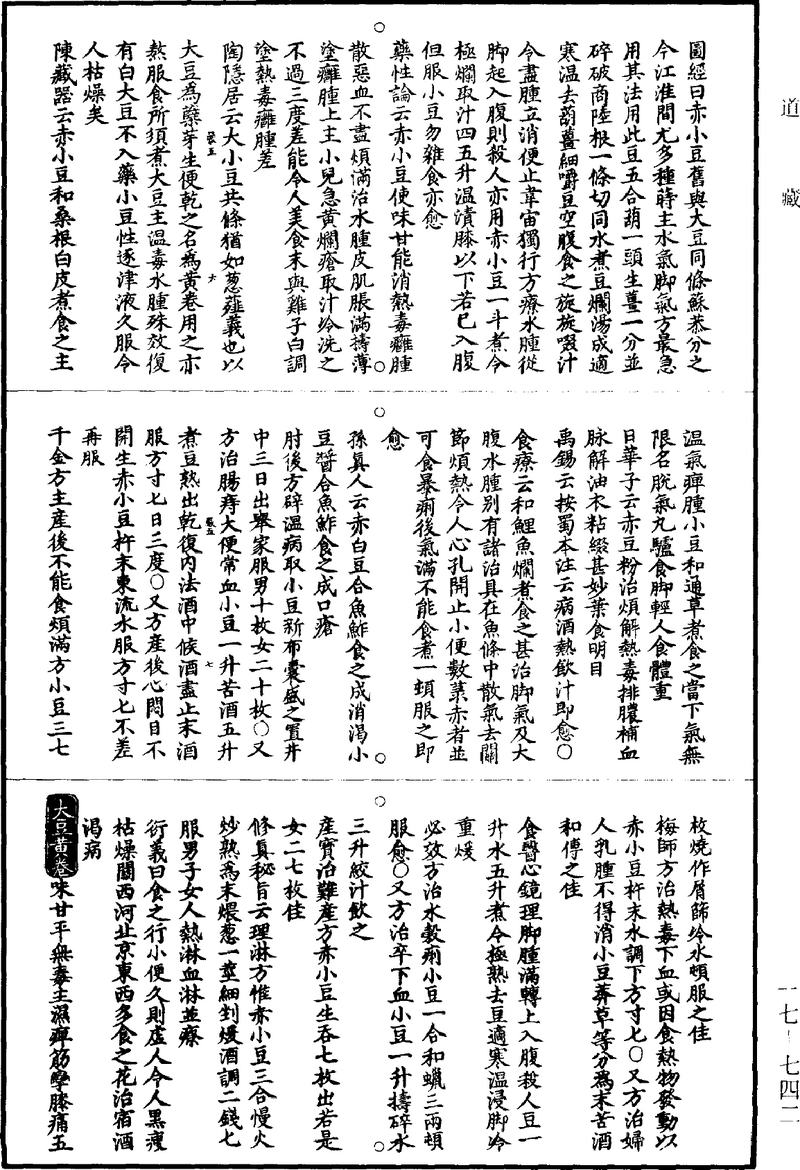 道藏
圖經曰赤小豆舊與大豆同條蘇恭分之
今江淮間尤多種蒔主水氣脚氣方最急
用其法用此豆五合葫一頭生薑一分並
碎破商陸根一條切同水煮豆爛湯成適
寒温去葫薑細嚼豆空腹食之旋旋啜汁
令盡腫立消便止韋宙獨行方療水腫從
脚起入腹則殺人亦用赤小豆一斗煮令
極爛取汁四五升温漬膝以下若已入腹
但服小豆勿雜食亦愈
藥性論云赤小豆使味甘能消熱毒癰腫
散惡血不盡煩滿治水腫皮肌脹滿擣薄
塗癰腫上主小兒急黄爛瘡取汁冷洗之
不過三度差能令人美食末與雞子白調
塗熱毒癰腫差
陶隱居云大小豆共條猶如葱薤義也以
大豆為蘗芽生便乾之名為黄卷用之亦
熬服食所須煮大豆主温毒水腫殊效復
有白大豆不入藥小豆性逐津液久服令
人枯燥矣
陳藏器云赤小豆和桑根白皮煮食之主
温氣痺腫小豆和通草煮食之當下氣無
限名脫氣丸驢食脚輕人食體重
日華子云赤豆粉治煩解熱毒排膿補血
脉解油衣粘綴甚妙葉食明目
禹錫云按蜀本注云病酒熱飲汁即愈○
食療云和鯉魚爛煮食之甚治脚氣及大
腹水腫别有諸治具在魚條中散氣去關
節煩熱令人心孔開止小便數菉赤者並
可食暴痢後氣滿不能食煮一頓服之即
愈
孫真人云赤白豆合魚鮓食之成消渴小
豆醬合魚鮓食之成口瘡
肘後方辟温病取小豆新布囊盛之置井
中三日出舉家服男十枚女二十枚○又
方治腸痔大便常血小豆一升苦酒五升
煮豆熟出乾復内法酒中候酒盡止末酒
服方寸匕日三度○又方産後心悶目不
開生赤小豆杵末東流水服方寸匕不差
再服
千金方主産後不能食煩滿方小豆三七
枚燒作屑篩冷水頓服之佳
梅師方治熱毒下血或因食熱物發動以
赤小豆杵末水調下方寸匕○又方治婦
人乳腫不得消小豆莽草等分為末苦酒
和傅之佳
食醫心鏡理脚腫滿轉上入腹殺人豆一
升水五升煮令極熟去豆適寒温浸脚冷
重煖
必效方治水穀痢小豆一合和蠟三兩頓
服愈○又方治卒下血小豆一升擣碎水
三升絞汁飲之
産寶治難産方赤小豆生吞七枚出若是
女二七枚佳
修真秘旨云理淋方惟赤小豆三合慢火
炒熟為末煨葱一莖細剉煖酒調二錢匕
服男子女人熱淋血淋並療
衍義曰食之行小便久則虚人令人黑瘦
枯燥關西河北京東西多食之花治宿酒
渴病
大豆黄卷味甘平無毒主濕痺筋攣膝痛五
一七—七四二